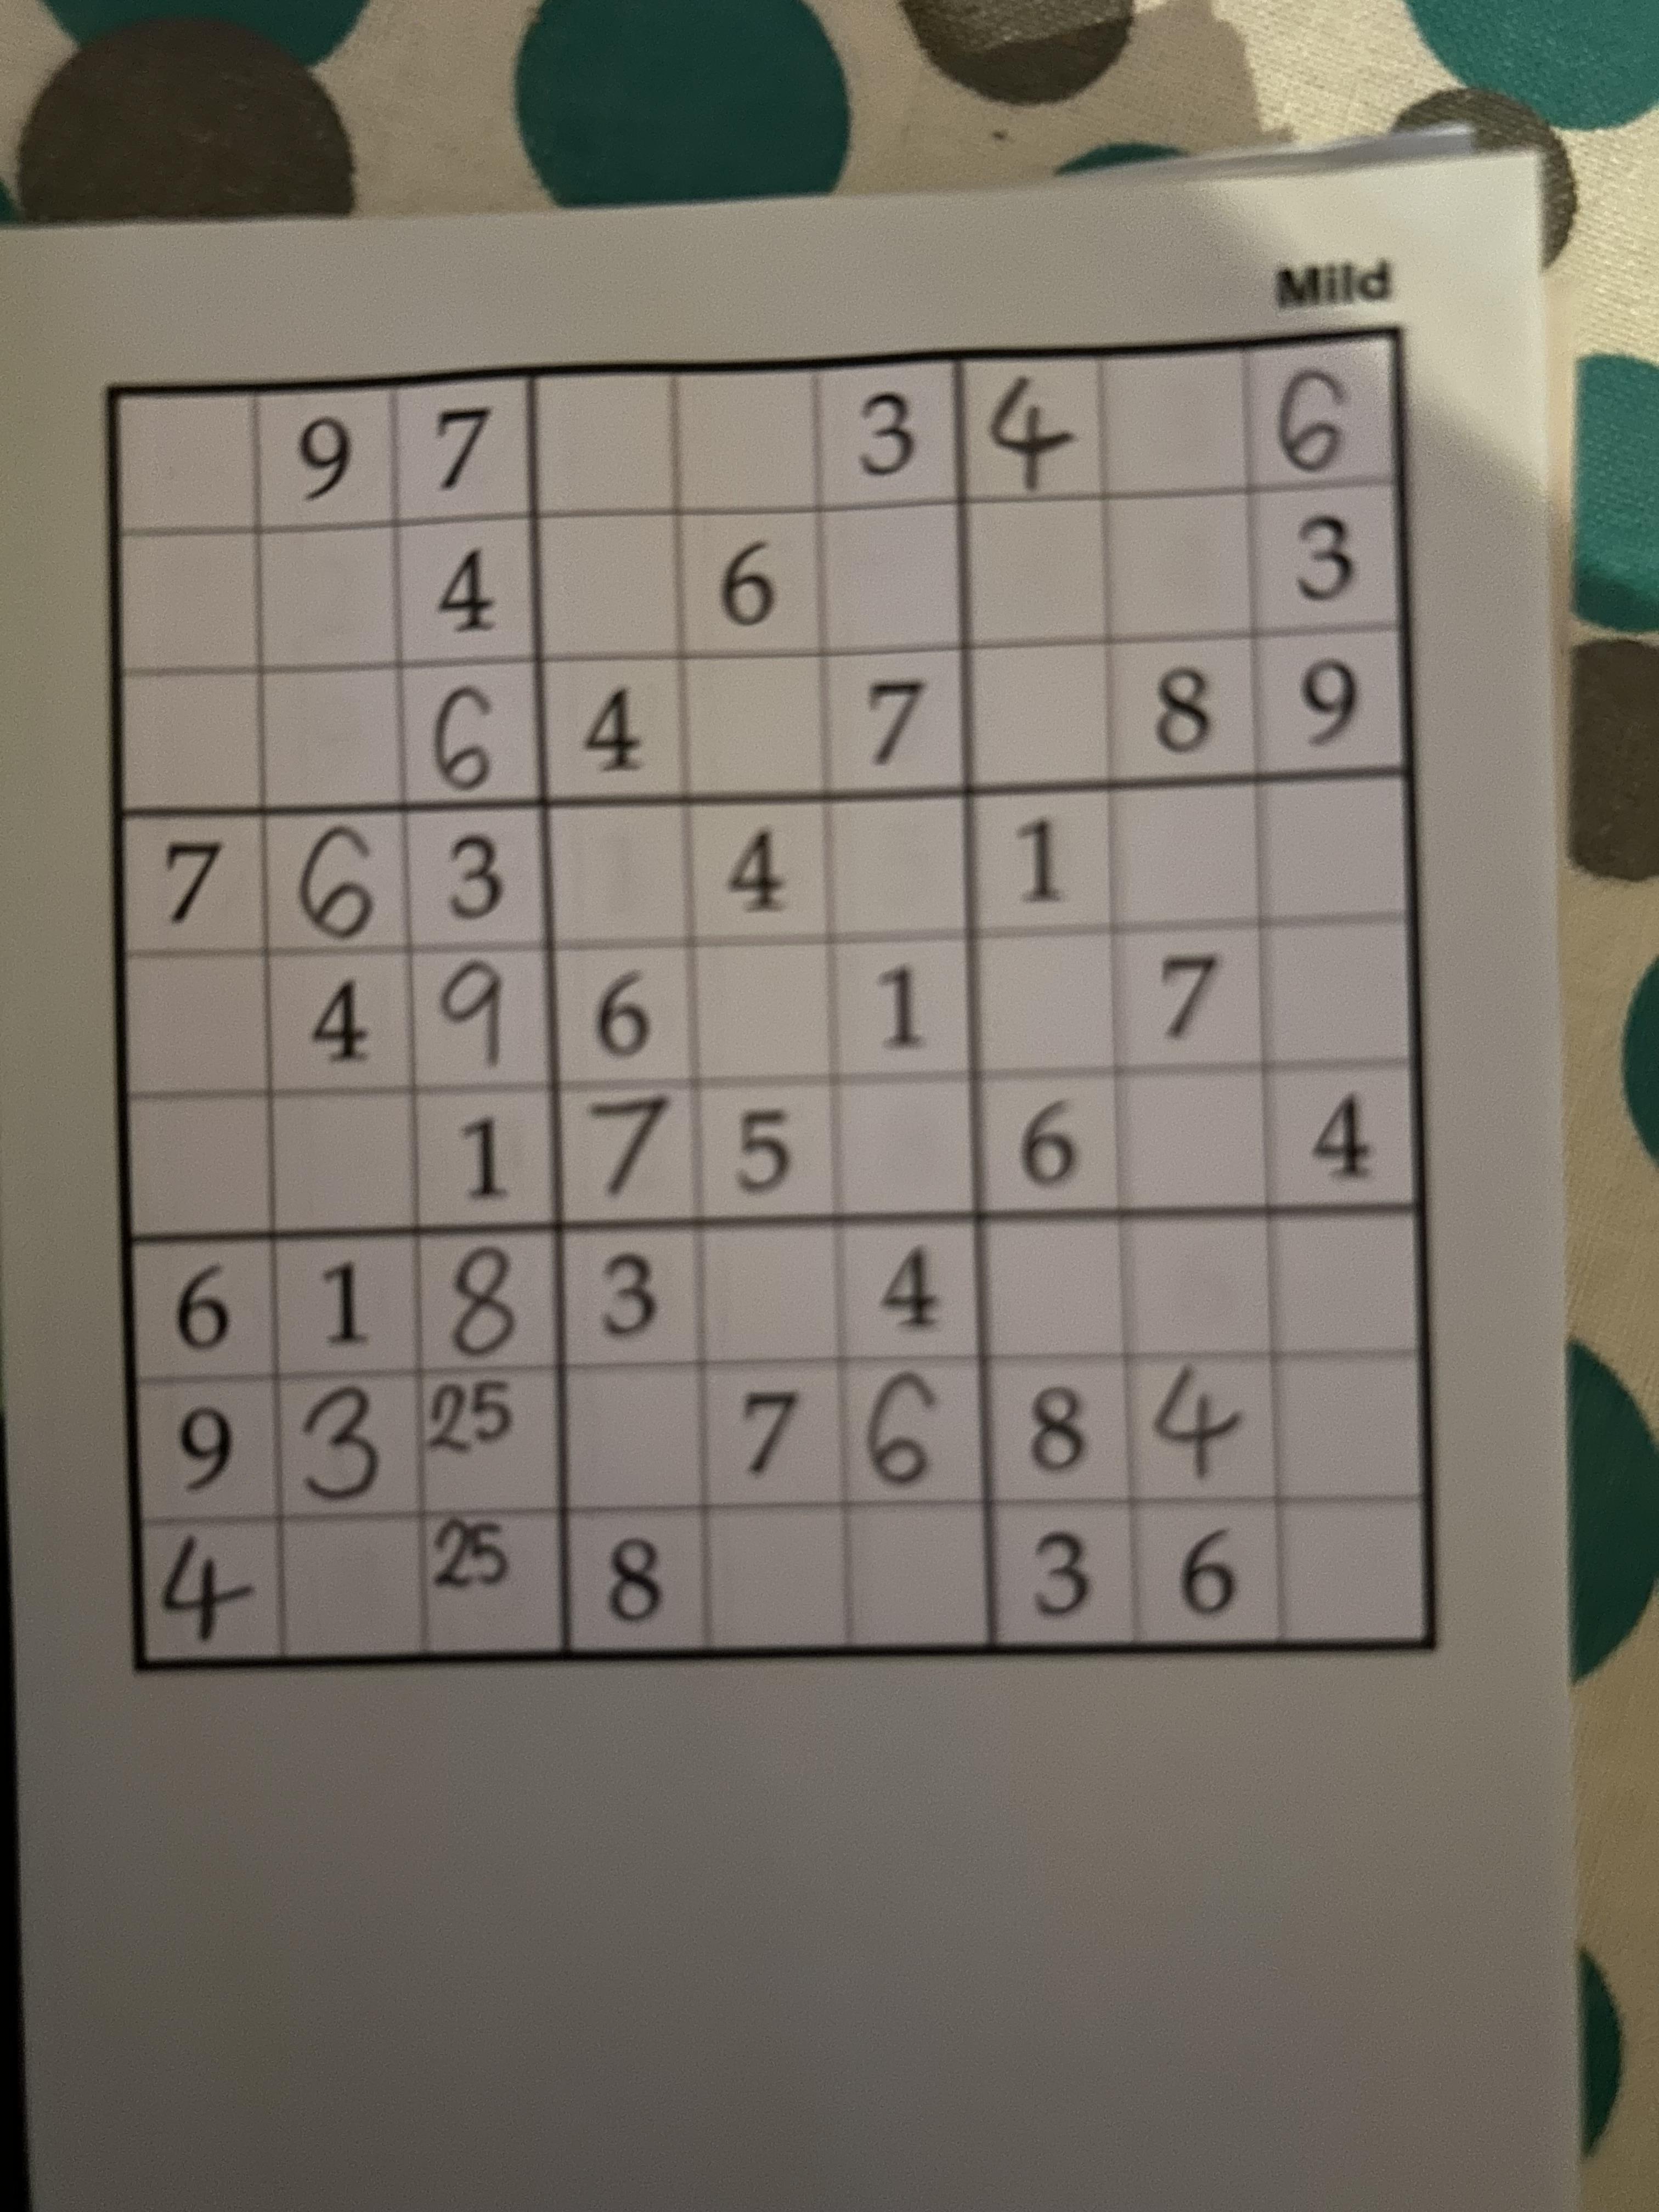 Mild
9 7 3 4 6
4 6 3
6 4 7 8 9
7 6 3 4 1
4 9 6 1 7
1 7 5 6 4
6 1 8 3 4
9 3 25 7 6 8 4
4 25 8 3 6